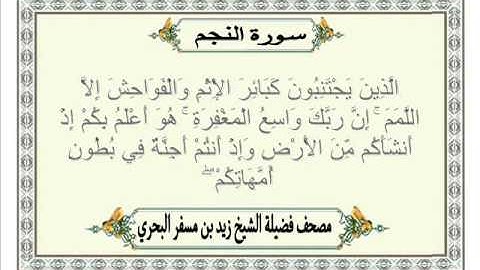 سورة النجم
الَّذِينَ يَجْتَنِبُونَ كَبَائِرَ الإِثْمِ وَالْفَوَاحِشَ إِلاَّ
اللَّمَمَ ۚ إِنَّ رَبَّكَ وَاسِعُ الْمَغْفِرَةِ ۚ هُوَ أَعْلَمُ بِكُمْ إِذْ
أَنشَأَكُم مِّنَ الأَرْضِ وَإِذْ أَنتُمْ أَجِنَّةٌ فِي بُطُونِ
أُمَّهَاتِكُمْ ۖ
مصحف فضيلة الشيخ زيد بن مسفر البحري